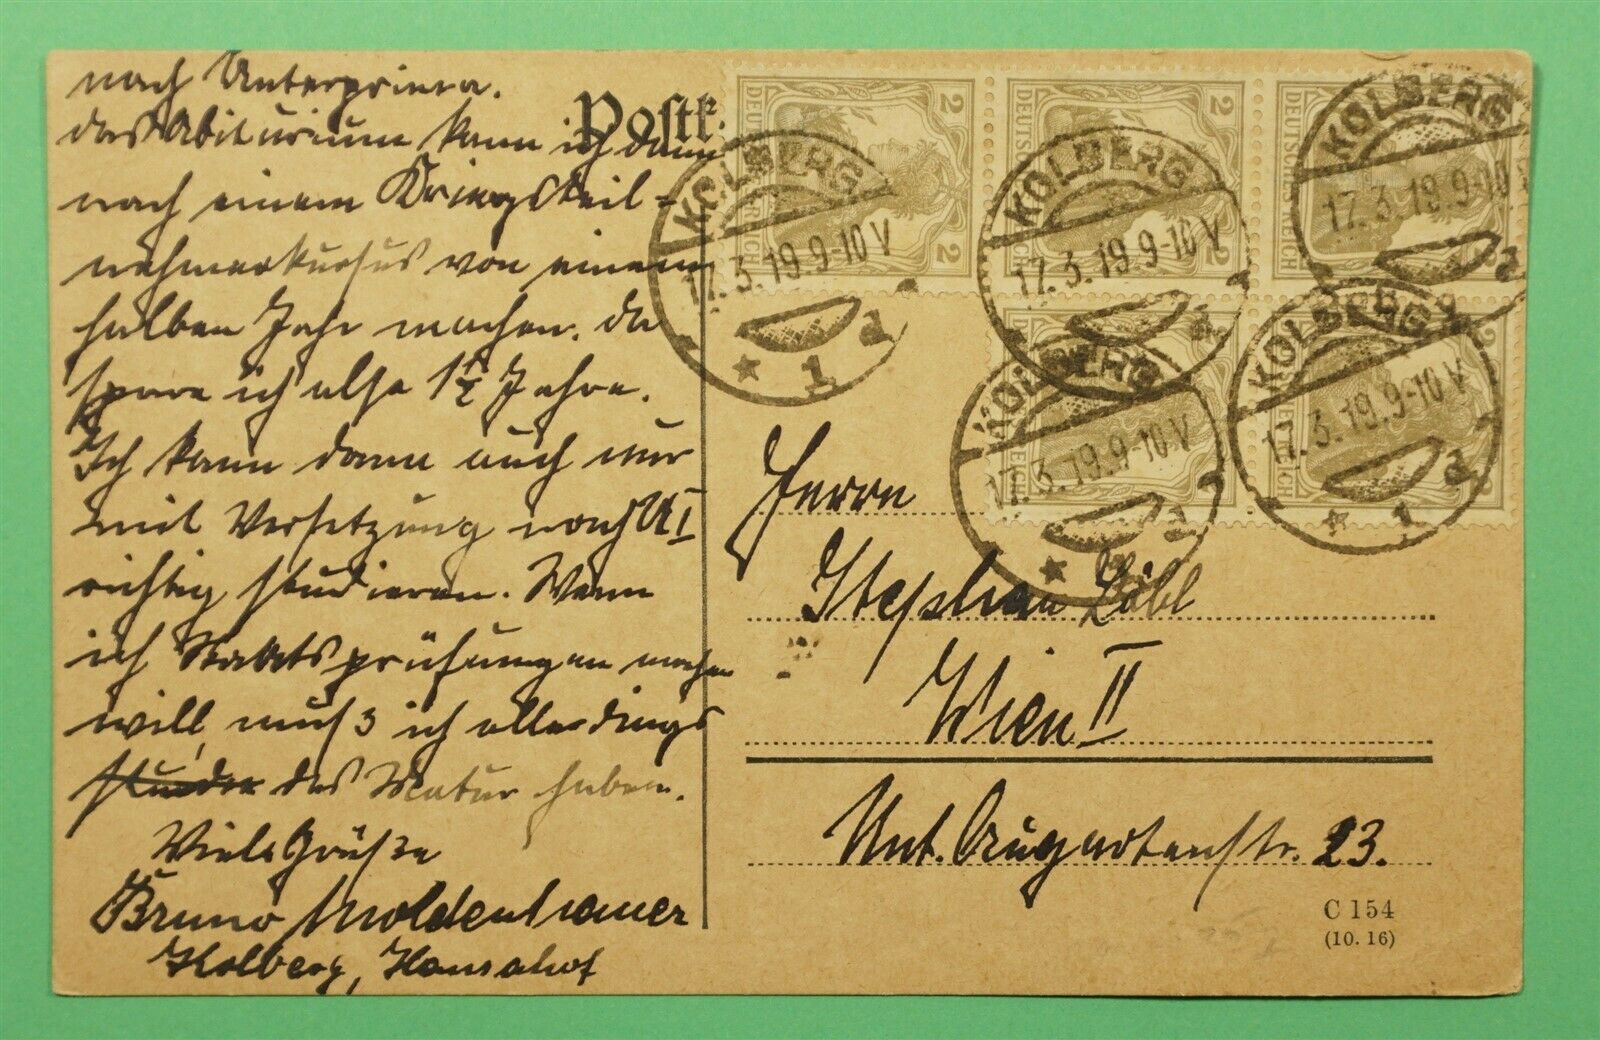 nach Unterprima.
das Abiturium kann ich dann
nach einem Kriegsteil-
nehmerkursus von einem
halben Jahr machen. da
spare ich also 1½ Jahre.
Ich kann dann auch nur
mit Versetzung nach U I
richtig studieren. Wenn
ich Staatsprüfungen machen
will, muß ich allerdings
das Matur haben.
Viele Grüße
Bruno Moldenhauer
Kolberg, Hansahof
Postk
2 DEUTSCHES REICH 2
2 DEUTSCHES REICH 2
2 DEUTSCHES REICH 2
REICH
REICH 2
KOLBERG
17.3.19.9-10V
* 1 d
KOLBERG
17.3.19.9-10V
KOLBERG
17.3.19.9-10
KOLBERG
17.3.19.9-10V
KOLBERG
17.3.19.9-10V
* 1 d
Herrn
Stephan Löbl
Wien II
Unt. Augartenstr. 23.
C 154
(10. 16)